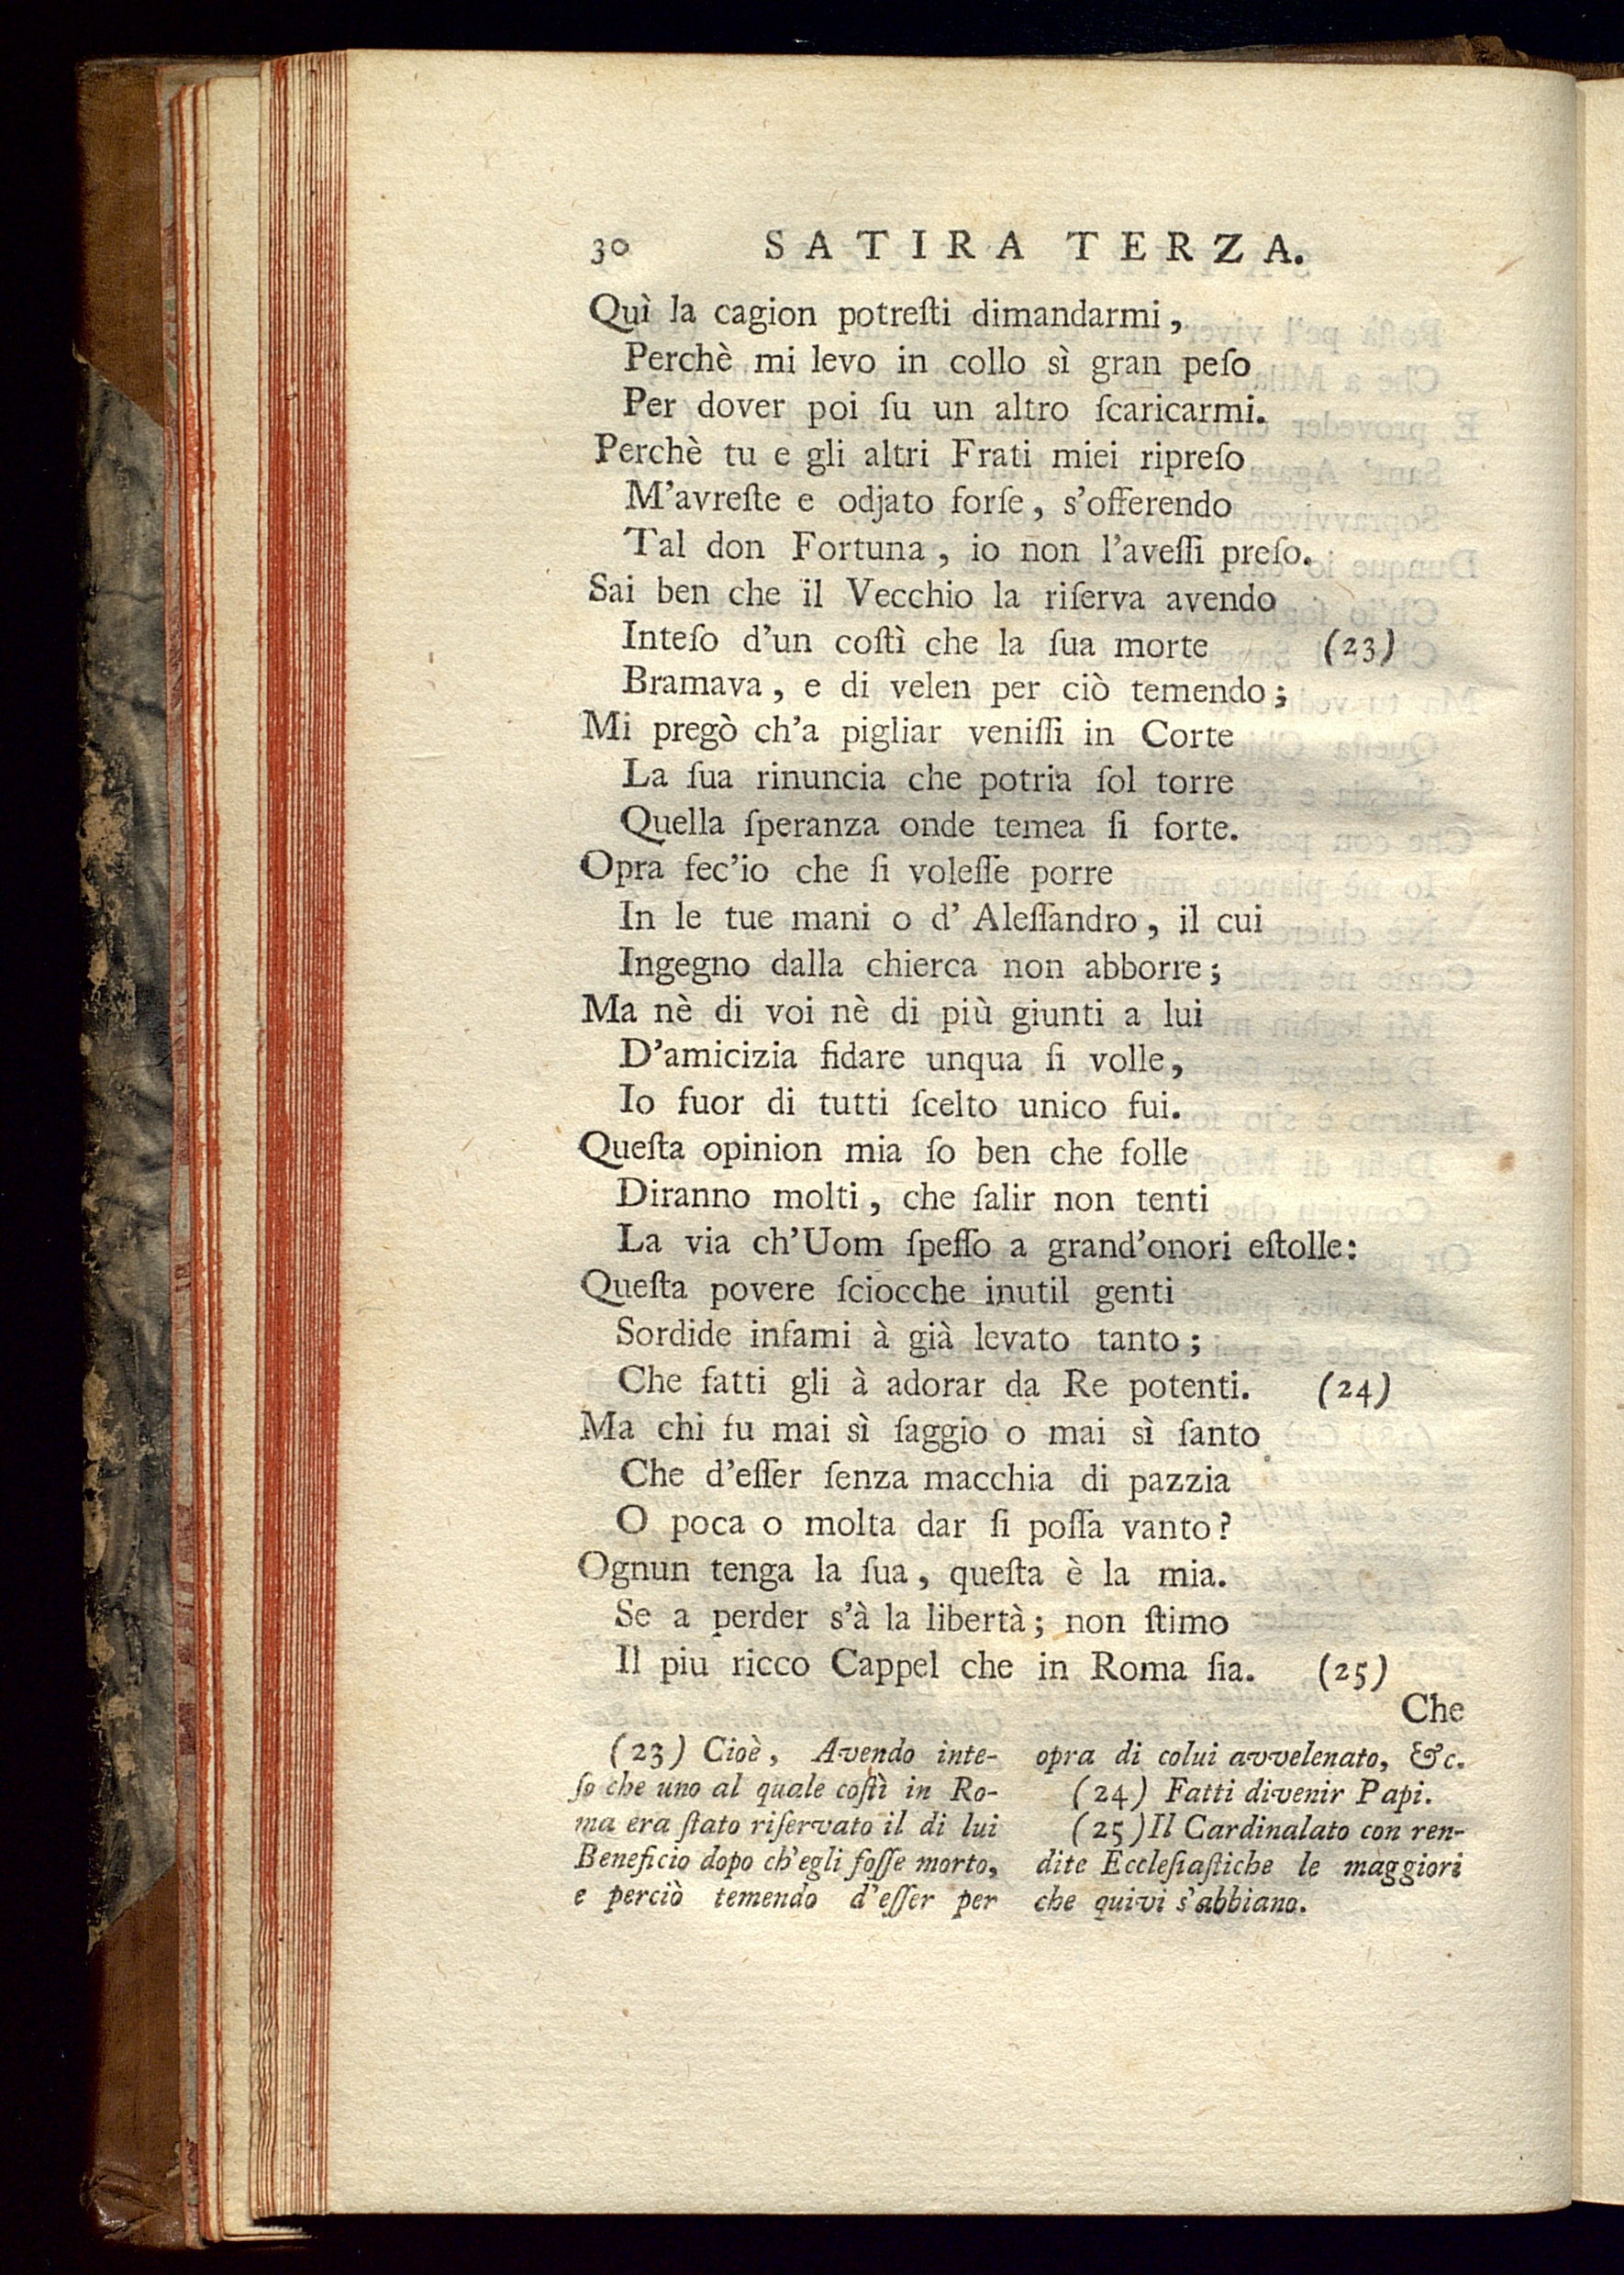 30 SATIRA TERZA.
Quì la cagion potreſti dimandarmi,
Perchè mi levo in collo sì gran peſo
Per dover poi ſu un altro ſcaricarmi.
Perchè tu e gli altri Frati miei ripreſo
M'avreſte e odjato forſe, s'offerendo
Tal don Fortuna, io non l'aveſſi preſo.
Sai ben che il Vecchio la riſerva avendo
Inteſo d'un coſtì che la ſua morte (23)
Bramava, e di velen per ciò temendo;
Mi pregò ch'a pigliar veniſſi in Corte
La ſua rinuncia che potria ſol torre
Quella ſperanza onde temea ſi forte.
Opra fec'io che ſi voleſſe porre
In le tue mani o d' Aleſſandro, il cui
Ingegno dalla chierca non abborre;
Ma nè di voi nè di più giunti a lui
D'amicizia fidare unqua ſi volle,
Io fuor di tutti ſcelto unico fui.
Queſta opinion mia ſo ben che folle
Diranno molti, che ſalir non tenti
La via ch'Uom ſpeſſo a grand'onori eſtolle:
Queſta povere ſciocche inutil genti
Sordide infami à già levato tanto;
Che fatti gli à adorar da Re potenti. (24)
Ma chi fu mai sì ſaggio o mai sì ſanto
Che d'eſſer ſenza macchia di pazzia
O poca o molta dar ſi poſſa vanto?
Ognun tenga la ſua, queſta è la mia.
Se a perder s'à la libertà; non ſtimo
Il piu ricco Cappel che in Roma ſia. (25)
Che
(23) Cioè, Avendo inte-
ſo che uno al quale coſtì in Ro-
ma era ſtato riſervato il di lui
Beneficio dopo ch'egli foſſe morto,
e perciò temendo d'eſſer per
opra di colui avvelenato, &c.
(24) Fatti divenir Papi.
(25) Il Cardinalato con ren-
dite Eccleſiaſtiche le maggiori
che quivi s'abbiano.